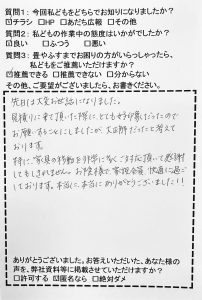 質問1: 今回私どもをどちらでお知りになりましたか?
☑チラシ □HP □あだち広報 □その他
質問2: 私どもの作業中の態度はいかがでしたか?
☑良い □ふつう □悪い
質問3: 畳やふすまでお困りの方がいらっしゃったら、
私どもをご推薦いただけますか?
☑推薦できる □推薦できない □分からない
その他、ご要望がございましたら、お書きください。
先日は大変お世話になりました。
見積りに来て頂いた際に、とても好印象だったので
お願いすることにしましたが、大正解だったと考えて
おります。
特に、家具の移動を非常に多くご対応頂いて感謝
してもしきれません。お陰様で、家族全員、快適に過ご
しております。本当に、本当にありがとうございました!!
ありがとうございました。お答えいただいた、あなた様の
声を、弊社資料等に掲載させていただけますか?
□許可する ☑匿名なら □絶対ダメ